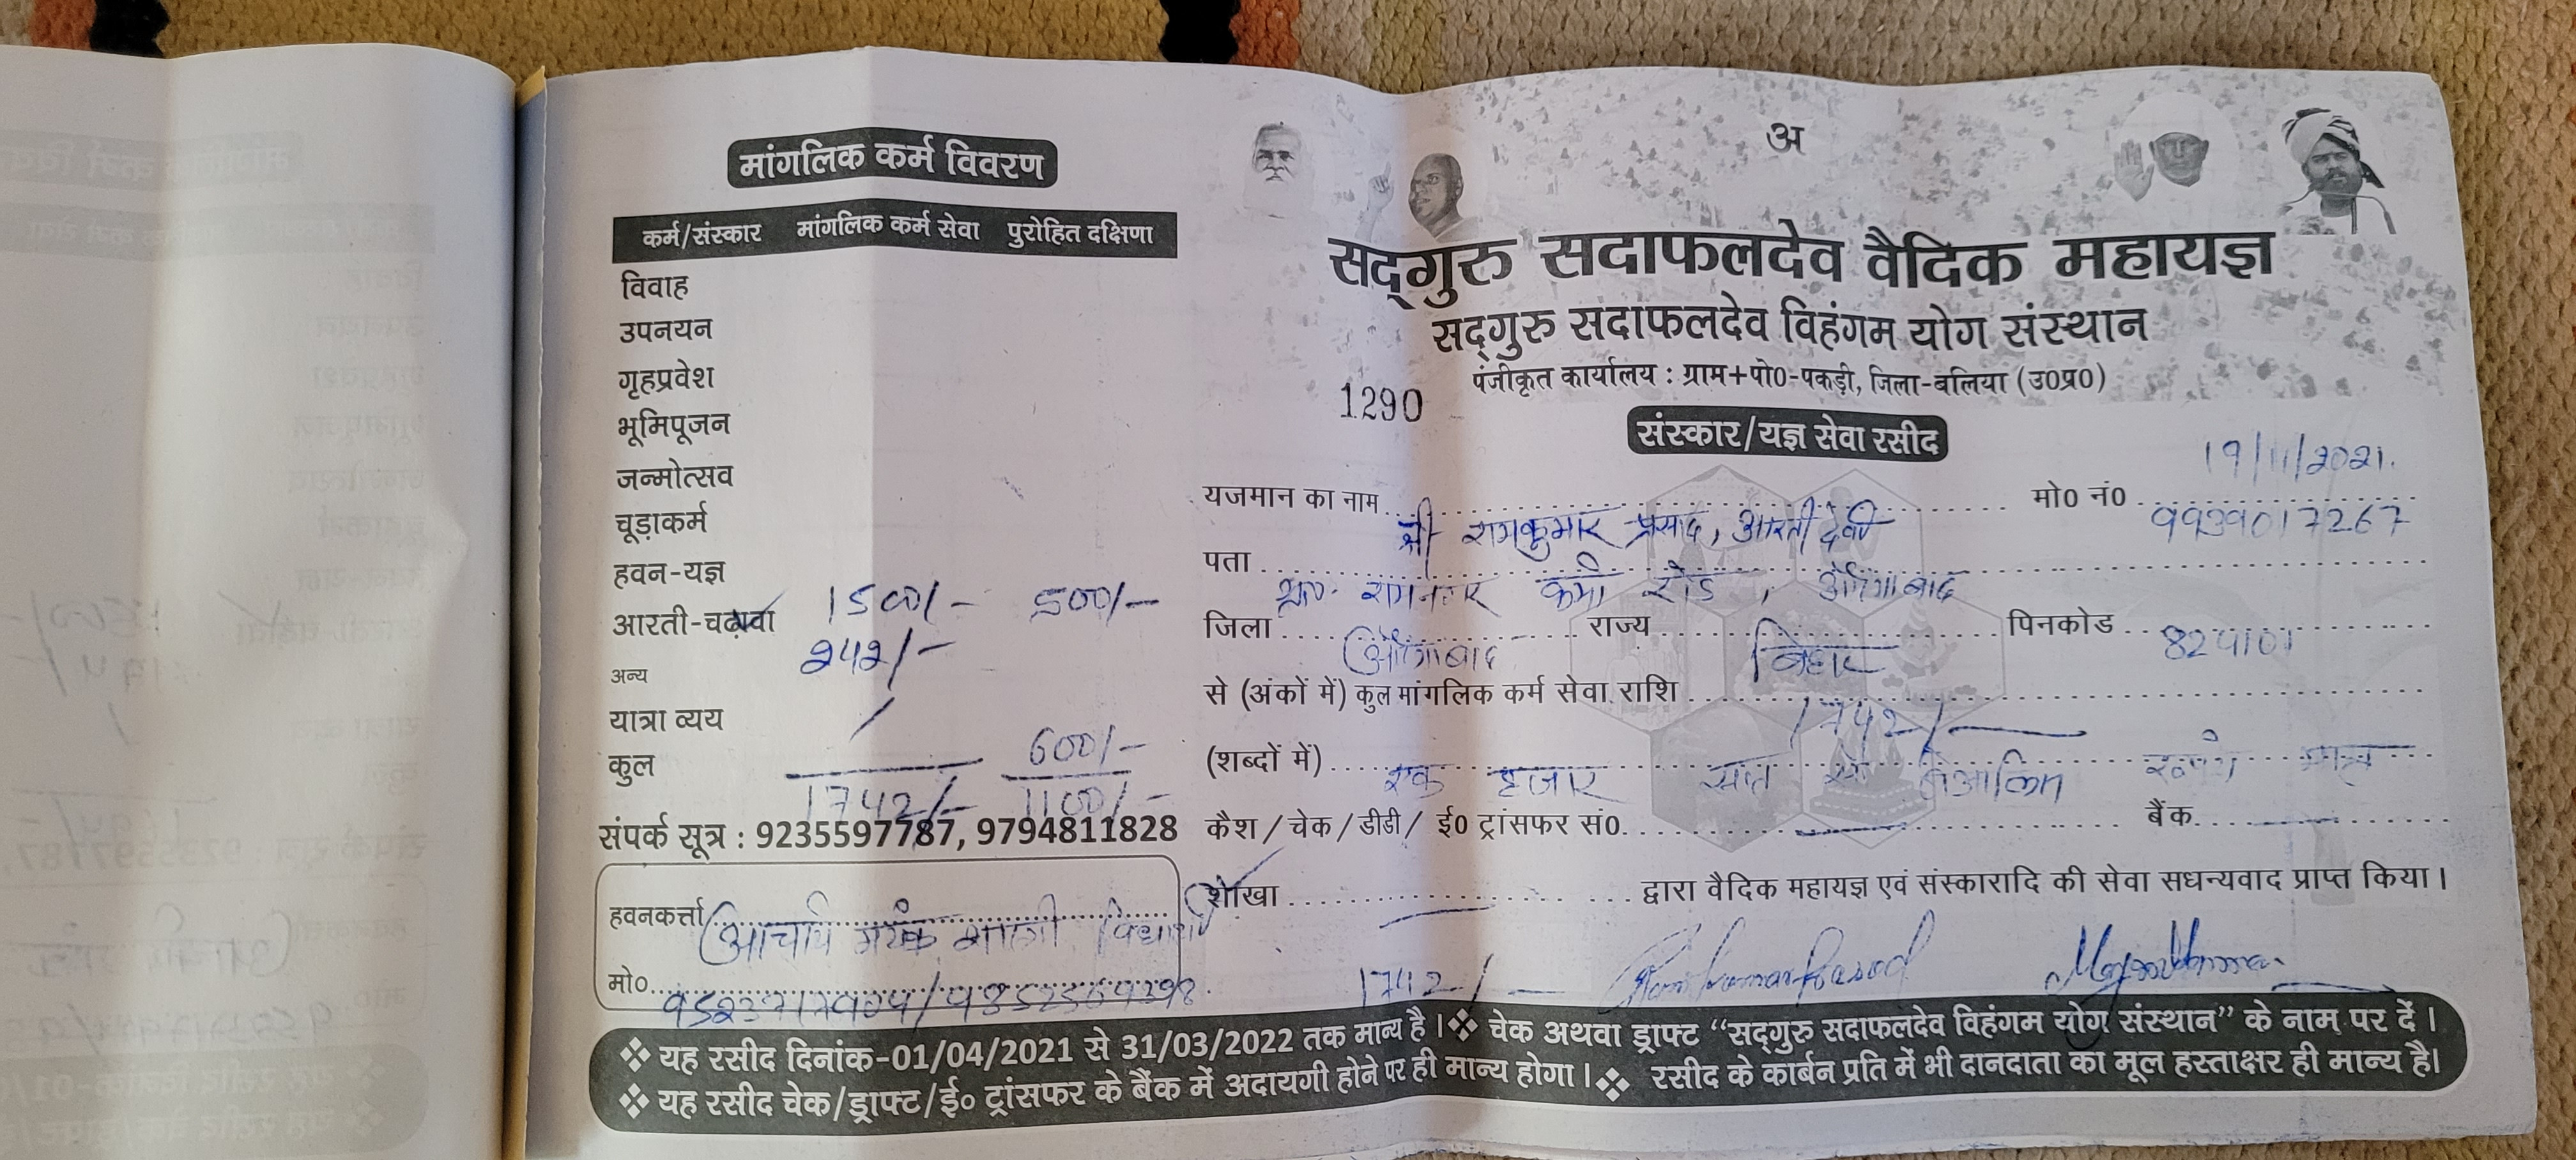 मांगलिक कर्म विवरण
कर्म/संस्कार मांगलिक कर्म सेवा पुरोहित दक्षिणा
विवाह
उपनयन
गृहप्रवेश
भूमिपूजन
जन्मोत्सव
चूड़ाकर्म
हवन-यज्ञ 1500/- 500/-
आरती-चढ़ावा 242/-
अन्य
यात्रा व्यय / 600/-
कुल 1742/- 1100/-
संपर्क सूत्र : 9235597787, 9794811828
हवनकर्त्ता आचार्य
मो०
अ
सद्गुरु सदाफलदेव वैदिक महायज्ञ
सद्गुरु सदाफलदेव विहंगम योग संस्थान
पंजीकृत कार्यालय : ग्राम+पो0-पकड़ी, जिला-बलिया (उ0प्र0)
1290
संस्कार/यज्ञ सेवा रसीद
19/11/2021.
यजमान का नाम श्री रामकुमार प्रसाद, आरती देवी मो0 नं0 9939017267
पता रामनगर कर्मा रोड, औरंगाबाद
जिला औरंगाबाद राज्य बिहार पिनकोड 824101
से (अंकों में) कुल मांगलिक कर्म सेवा राशि 1742/-
(शब्दों में) एक हजार सात सौ रुपये मात्र
कैश / चेक / डीडी / ई0 ट्रांसफर सं0. बैंक.
शाखा द्वारा वैदिक महायज्ञ एवं संस्कारादि की सेवा सधन्यवाद प्राप्त किया।
1742/- Ram kumar Prasad
❖ यह रसीद दिनांक-01/04/2021 से 31/03/2022 तक मान्य है। ❖ चेक अथवा ड्राफ्ट “सद्गुरु सदाफलदेव विहंगम योग संस्थान” के नाम पर दें।
❖ यह रसीद चेक/ड्राफ्ट/ई० ट्रांसफर के बैंक में अदायगी होने पर ही मान्य होगा। ❖ रसीद के कार्बन प्रति में भी दानदाता का मूल हस्ताक्षर ही मान्य है।